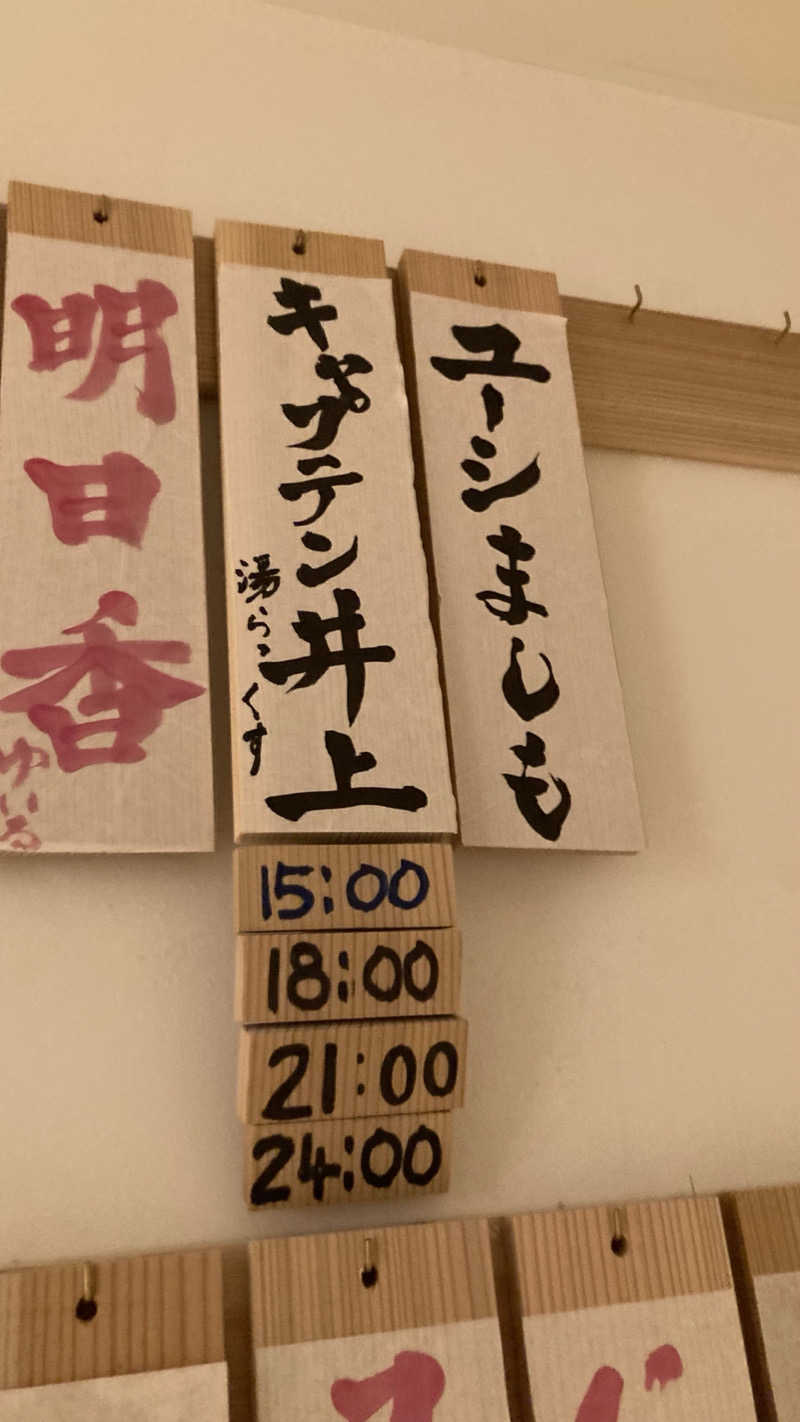 ユーシましも
キャプテン井上
湯らっくす
15:00
18:00
21:00
24:00
明日香
ゆいる